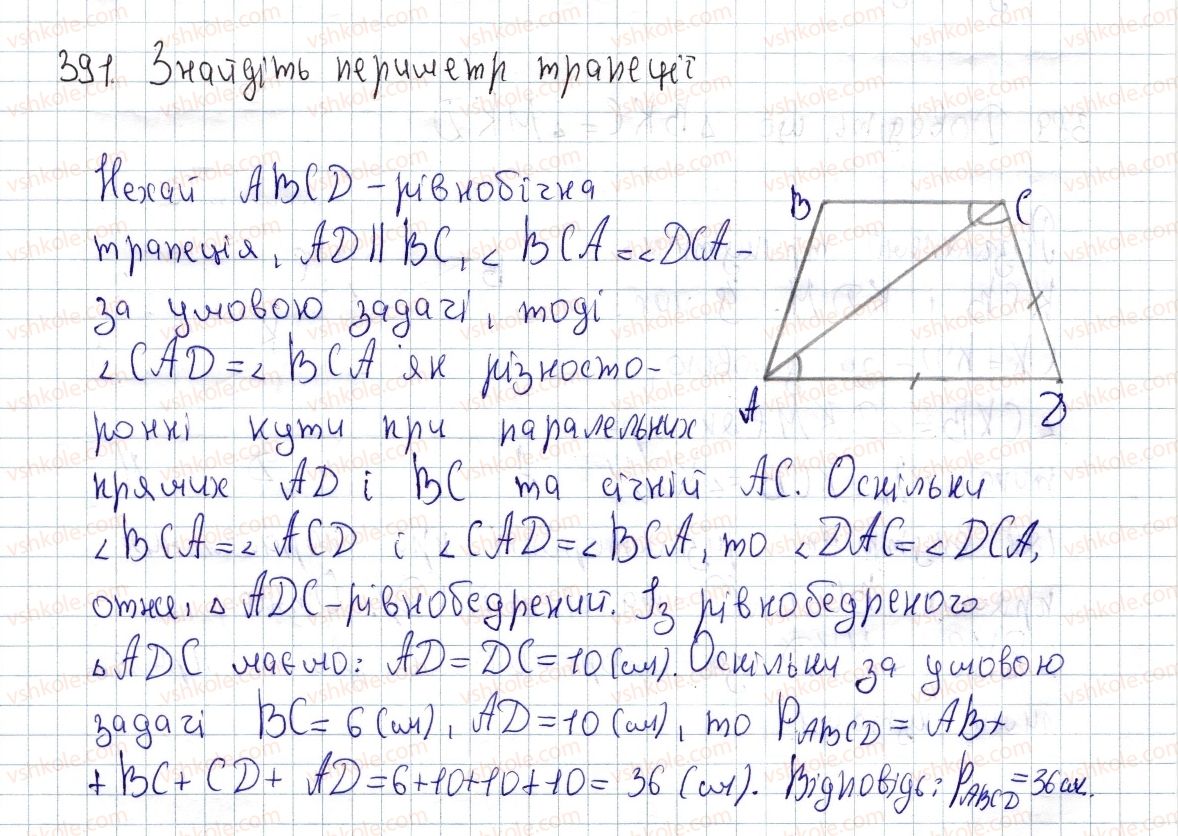 391. Знайдіть периметр трапеції
Нехай ABCD - рівнобічна
трапеція, AD || BC, ∠ BCA = ∠ DCA -
за умовою задачі, тоді
∠ CAD = ∠ BCA як різносто-
ронні кути при паралельних
прямих AD і BC та січній AC. Оскільки
∠ BCA = ∠ ACD і ∠ CAD = ∠ BCA, то ∠ DAC = ∠ DCA,
отже, △ ADC - рівнобедрений. Із рівнобедреного
△ ADC маємо: AD = DC = 10 (см). Оскільки за умовою
задачі BC = 6 (см), AD = 10 (см), то P ABCD = AB +
+ BC + CD + AD = 6 + 10 + 10 + 10 = 36 (см). Відповідь: P ABCD = 36 см.
B
C
A
D
vshkole.com